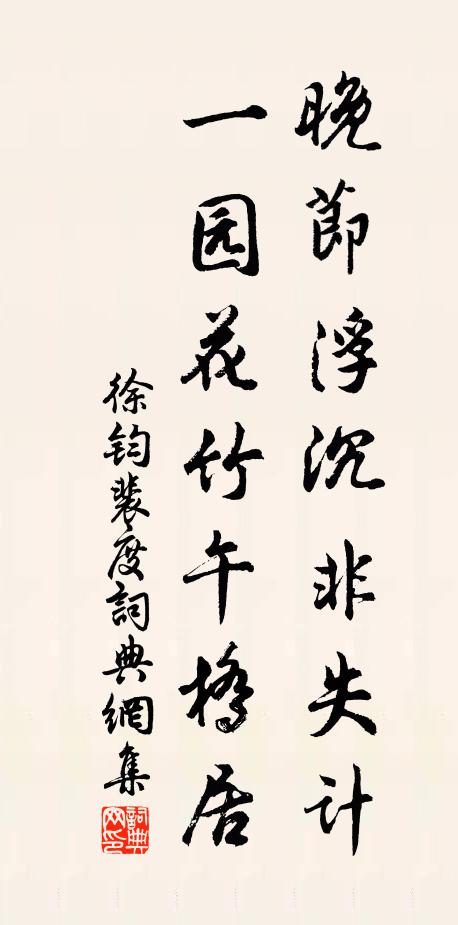 晚節浮沉非失计
一园花竹午橋居
徐鈞裴度詞典網集
詞典网印